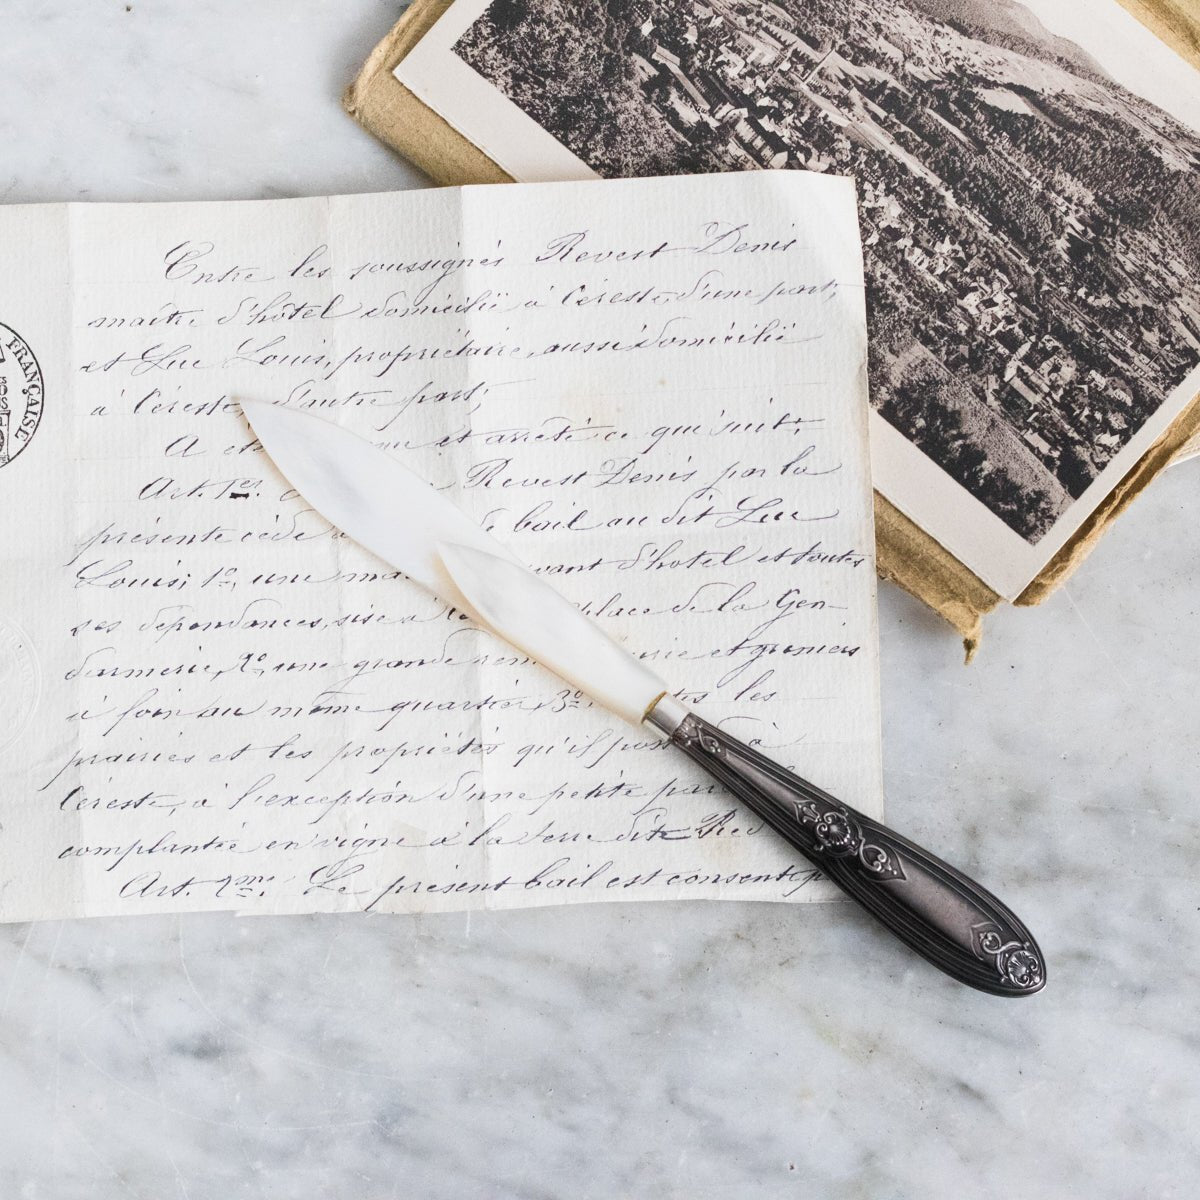 FRANÇAISE
Entre les soussignés Revest Denis
maître d'hôtel domicilié à Céreste, d'une part,
et Luc Louis, propriétaire, aussi domicilié
à Céreste, d'autre part;
A et arrêté ce qui suit:
Art. 1er. Revest Denis par la
présente cède bail au dit Luc
Louis; 1º, une vant d'hotel et toutes
ses dépendances, sise à place de la Gen-
darmerie, 2º, une grande rem et greniers
à foin au même quartier, 3º, les
prairies et les propriétés qu'il à
Céreste, à l'exception d'une petite
complantée en vigne à la terre dite
Art. 2me. Le présent bail est consenti